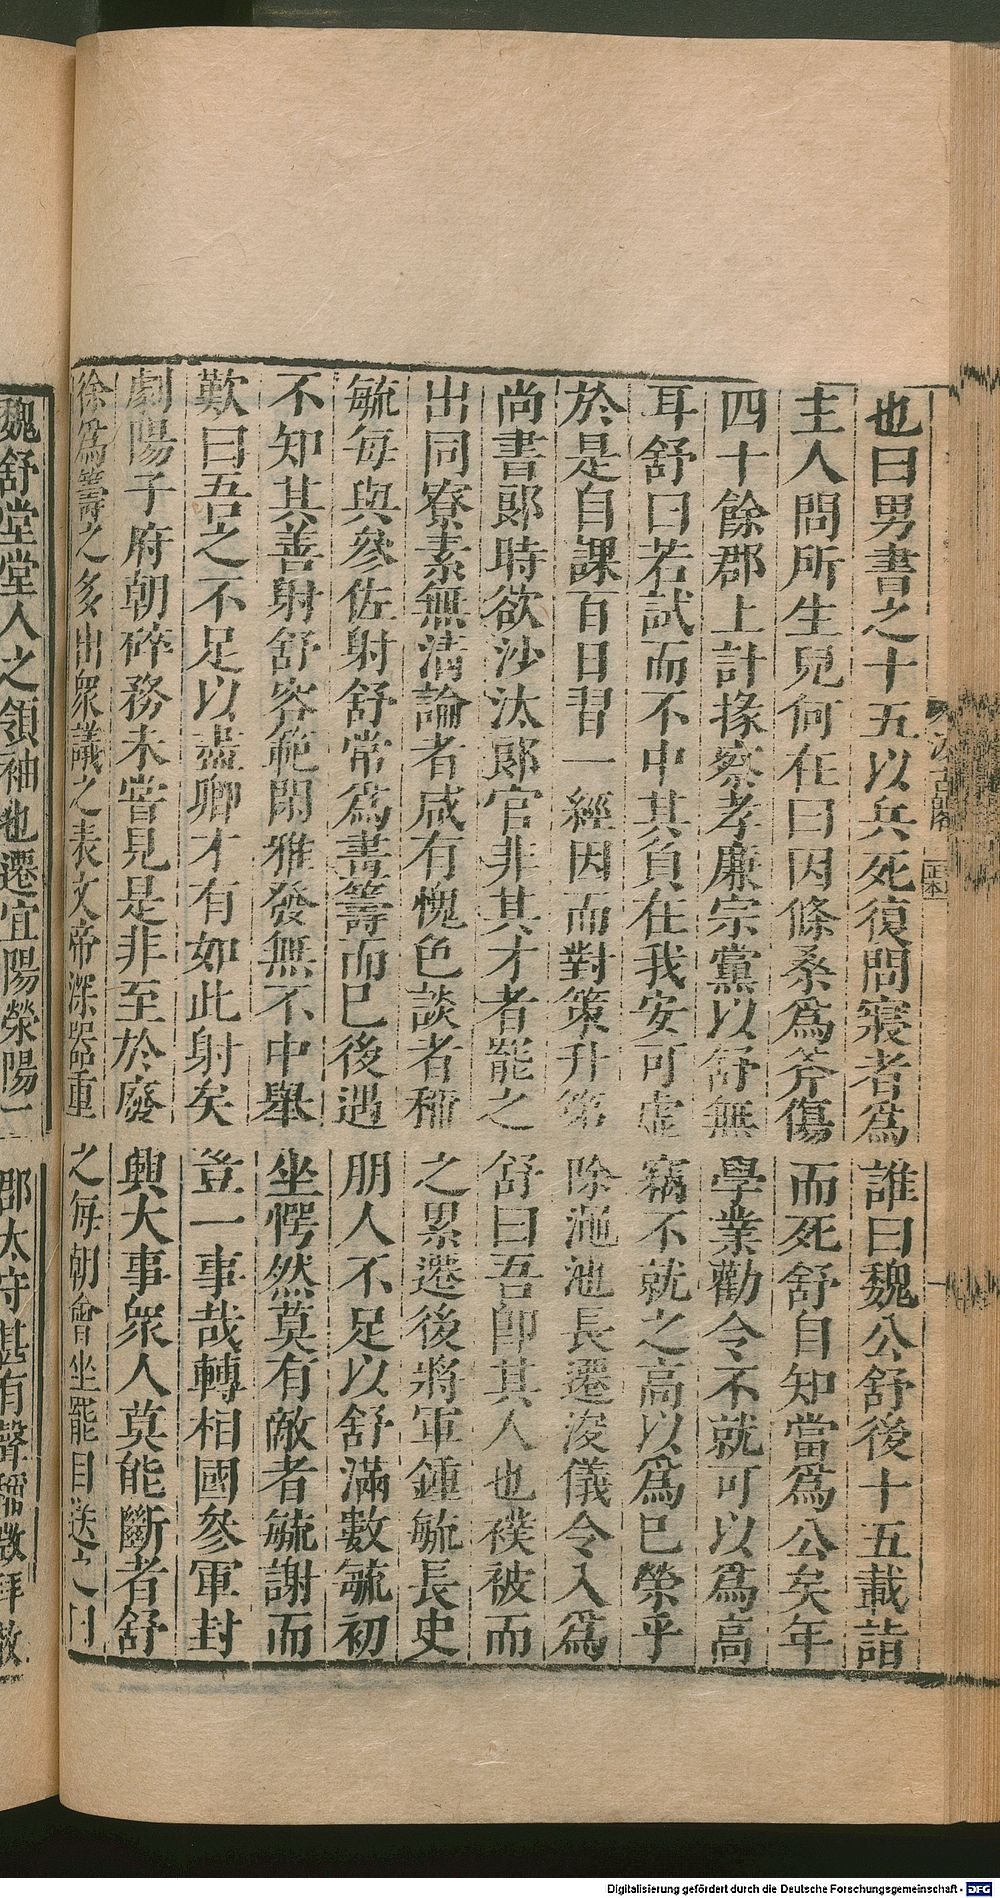 也曰男書之十五以兵死復問寢者爲誰曰魏公舒後十五載詣
主人問所生兒何在曰因條桑爲斧傷而死舒自知當爲公矣年
四十餘郡上計掾察孝廉宗黨以舒無學業勸令不就可以爲高
耳舒曰若試而不中其負在我安可虛竊不就之高以爲已榮乎
於是自課百日習一經因而對策升第除澠池長遷浚儀令入爲
尚書郎時欲沙汰郎官非其才者罷之舒曰吾卽其人也襆被而
出同寮素無淸論者咸有愧色談者稱之累遷後將軍鍾毓長史
毓每與叅佐射舒常爲畫籌而已後遇朋人不足以舒滿數毓初
不知其善射舒容範閑雅發無不中舉坐愕然莫有敵者毓謝而
歎曰吾之不足以盡卿才有如此射矣豈一事哉轉相國叅軍封
劇陽子府朝碎務未嘗見是非至於廢興大事衆人莫能斷者舒
徐爲籌之多出衆議之表文帝深器重之每朝會坐罷目送之曰
魏舒堂堂人之領袖也遷宜陽滎陽二郡太守甚有聲稱徵拜散
汲古閣
正本
Digitalisierung gefördert durch die Deutsche Forschungsgemeinschaft - DFG